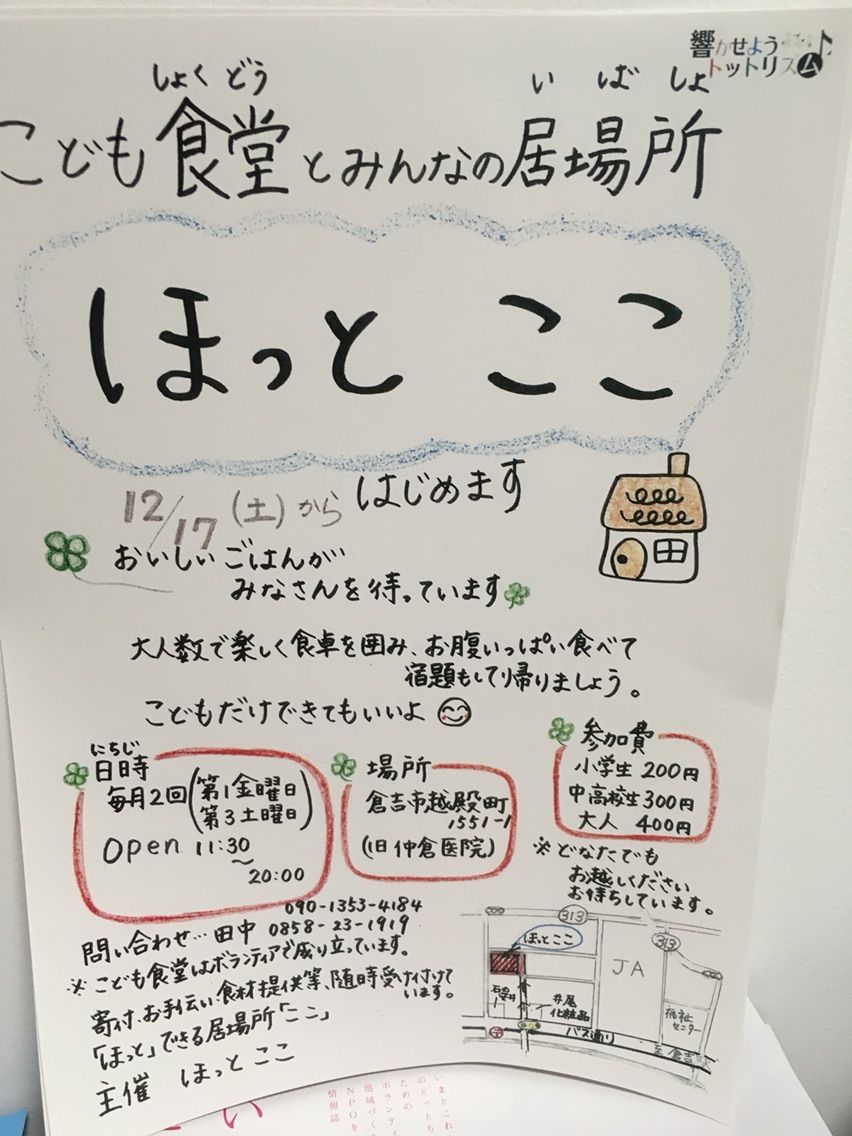 響かせよう
トットリズム
しょくどう いばしょ
こども食堂とみんなの居場所
ほっと ここ
12/17(土)から はじめます
おいしいごはんが
みなさんを待っています
大人数で楽しく食卓を囲み、お腹いっぱい食べて
宿題もして帰りましょう。
こどもだけできてもいいよ
にちじ
日時
毎月2回(第1金曜日
第3土曜日)
open 11:30
~
20:00
場所
倉吉市越殿町
1551-1
(旧仲倉医院)
参加費
小学生 200円
中高校生300円
大人 400円
※どなたでも
お越しください
お待ちしています。
090-1353-4184
問い合わせ…田中 0858-23-1919
※こども食堂はボランティアで成り立っています。
寄付、お手伝い、食材提供等、随時受け付けて
います。
「ほっと」できる居場所「ここ」
主催 ほっと ここ
313
ほっとここ
313
JA
井尾
化粧品
福祉
センター
バス通り
至倉吉